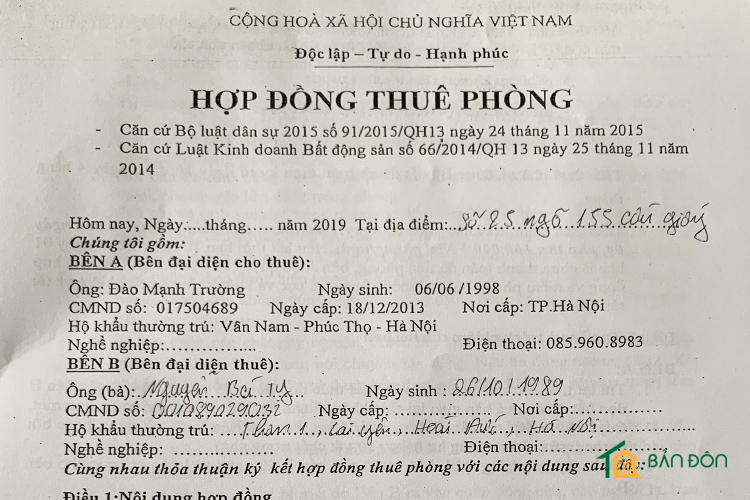 CỘNG HOÀ XÃ HỘI CHỦ NGHĨA VIỆT NAM
Độc lập – Tự do - Hạnh phúc
HỢP ĐỒNG THUÊ PHÒNG
- Căn cứ Bộ luật dân sự 2015 số 91/2015/QH13 ngày 24 tháng 11 năm 2015
- Căn cứ Luật Kinh doanh Bất động sản số 66/2014/QH 13 ngày 25 tháng 11 năm
2014
Hôm nay, Ngày:....tháng..... năm 2019 Tại địa điểm:..số 25 ngõ 155 cầu giấy
Chúng tôi gồm:
BÊN A (Bên đại diện cho thuê):
Ông: Đào Mạnh Trường Ngày sinh: 06/06 /1998
CMND số: 017504689 Ngày cấp: 18/12/2013 Nơi cấp: TP.Hà Nội
Hộ khẩu thường trú: Vân Nam - Phúc Thọ - Hà Nội
Nghề nghiệp:.............. Điện thoại: 085.960.8983
BÊN B (Bên đại diện thuê):
Ông (bà): Nguyễn Bá Tý Ngày sinh : 26/10/1989
CMND số: 001089029032 Ngày cấp:.............. Nơi cấp:..........
Hộ khẩu thường trú: Thôn 1, Lai Yên, Hoài Đức, Hà Nội
Nghề nghiệp: .................. Điện thoại:..................
Cùng nhau thỏa thuận ký kết hợp đồng thuê phòng với các nội dung sau đây:
BẢN ĐÔN
Điều 1:Nội dung hợp đồng